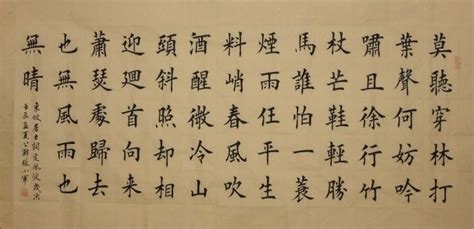 莫聽穿林打
葉聲何妨吟
嘯且徐行竹
杖芒鞋輕勝
馬誰怕一蓑
煙雨任平生
料峭春風吹
酒醒微冷山
頭斜照却相
迎迴首向來
蕭瑟處歸去
也無風雨也
無晴
東坡居士詞定風波歲次
壬辰孟夏張小軍